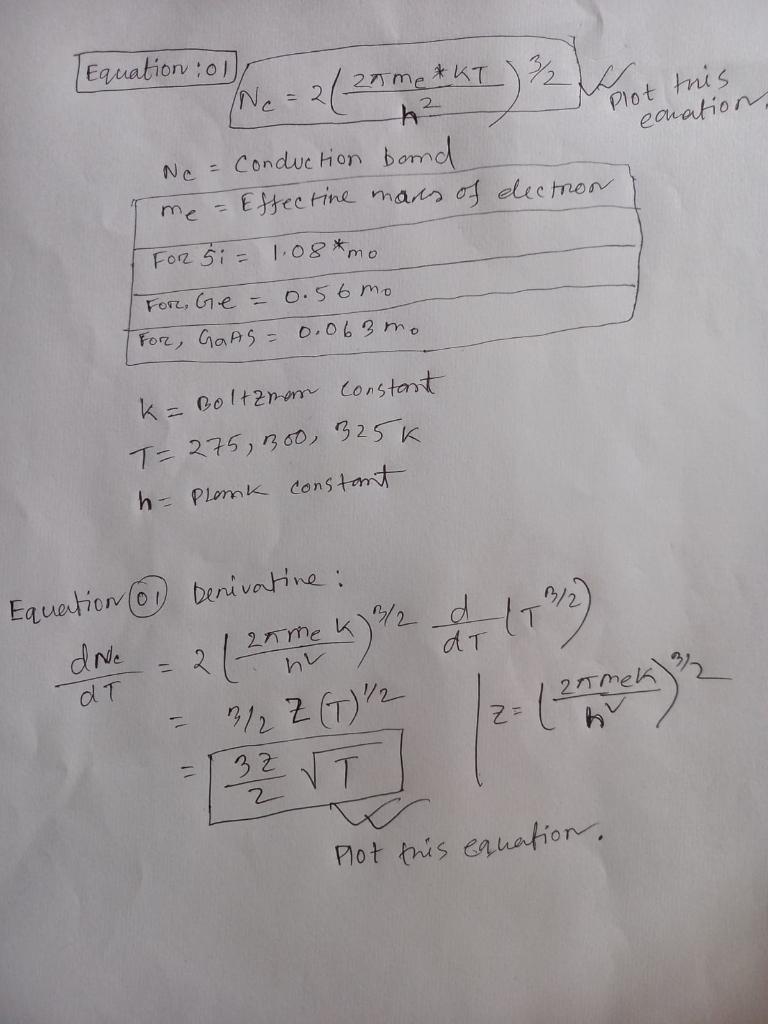 Equation:01
Nc = 2(2πme*KT/h²)^3/2
Plot this
equation.
Nc = Conduction band
me = Effective mass of electron
For Si = 1.08*mo
For, Ge = 0.56 mo
For, GaAS = 0.063 mo
K = Boltzman Constant
T = 275, 300, 325 K
h = Plank constant
Equation 01 Derivative:
dNc/dT = 2(2πme K/h²)^3/2 d/dT (T^3/2)
= 3/2 Z (T)^1/2 | Z = (2πmeK/h²)^3/2
= 3Z/2 √T
Plot this equation.